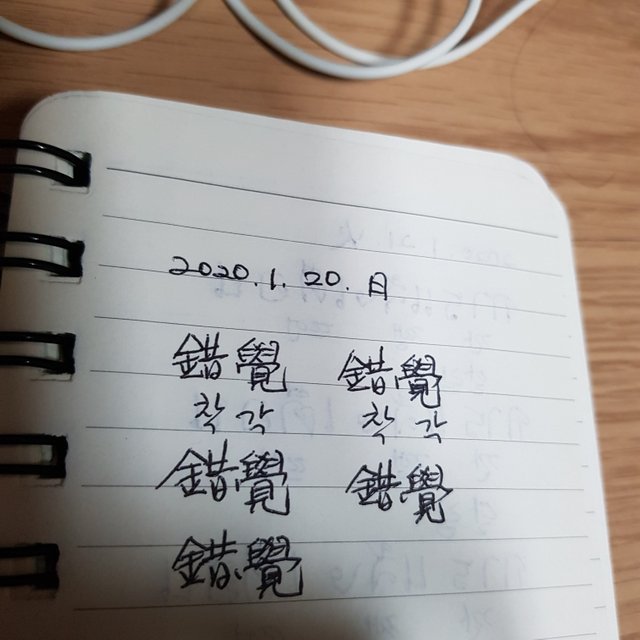 2020.1.20.月
錯覺 錯覺
착각 착각
錯覺 錯覺
錯覺